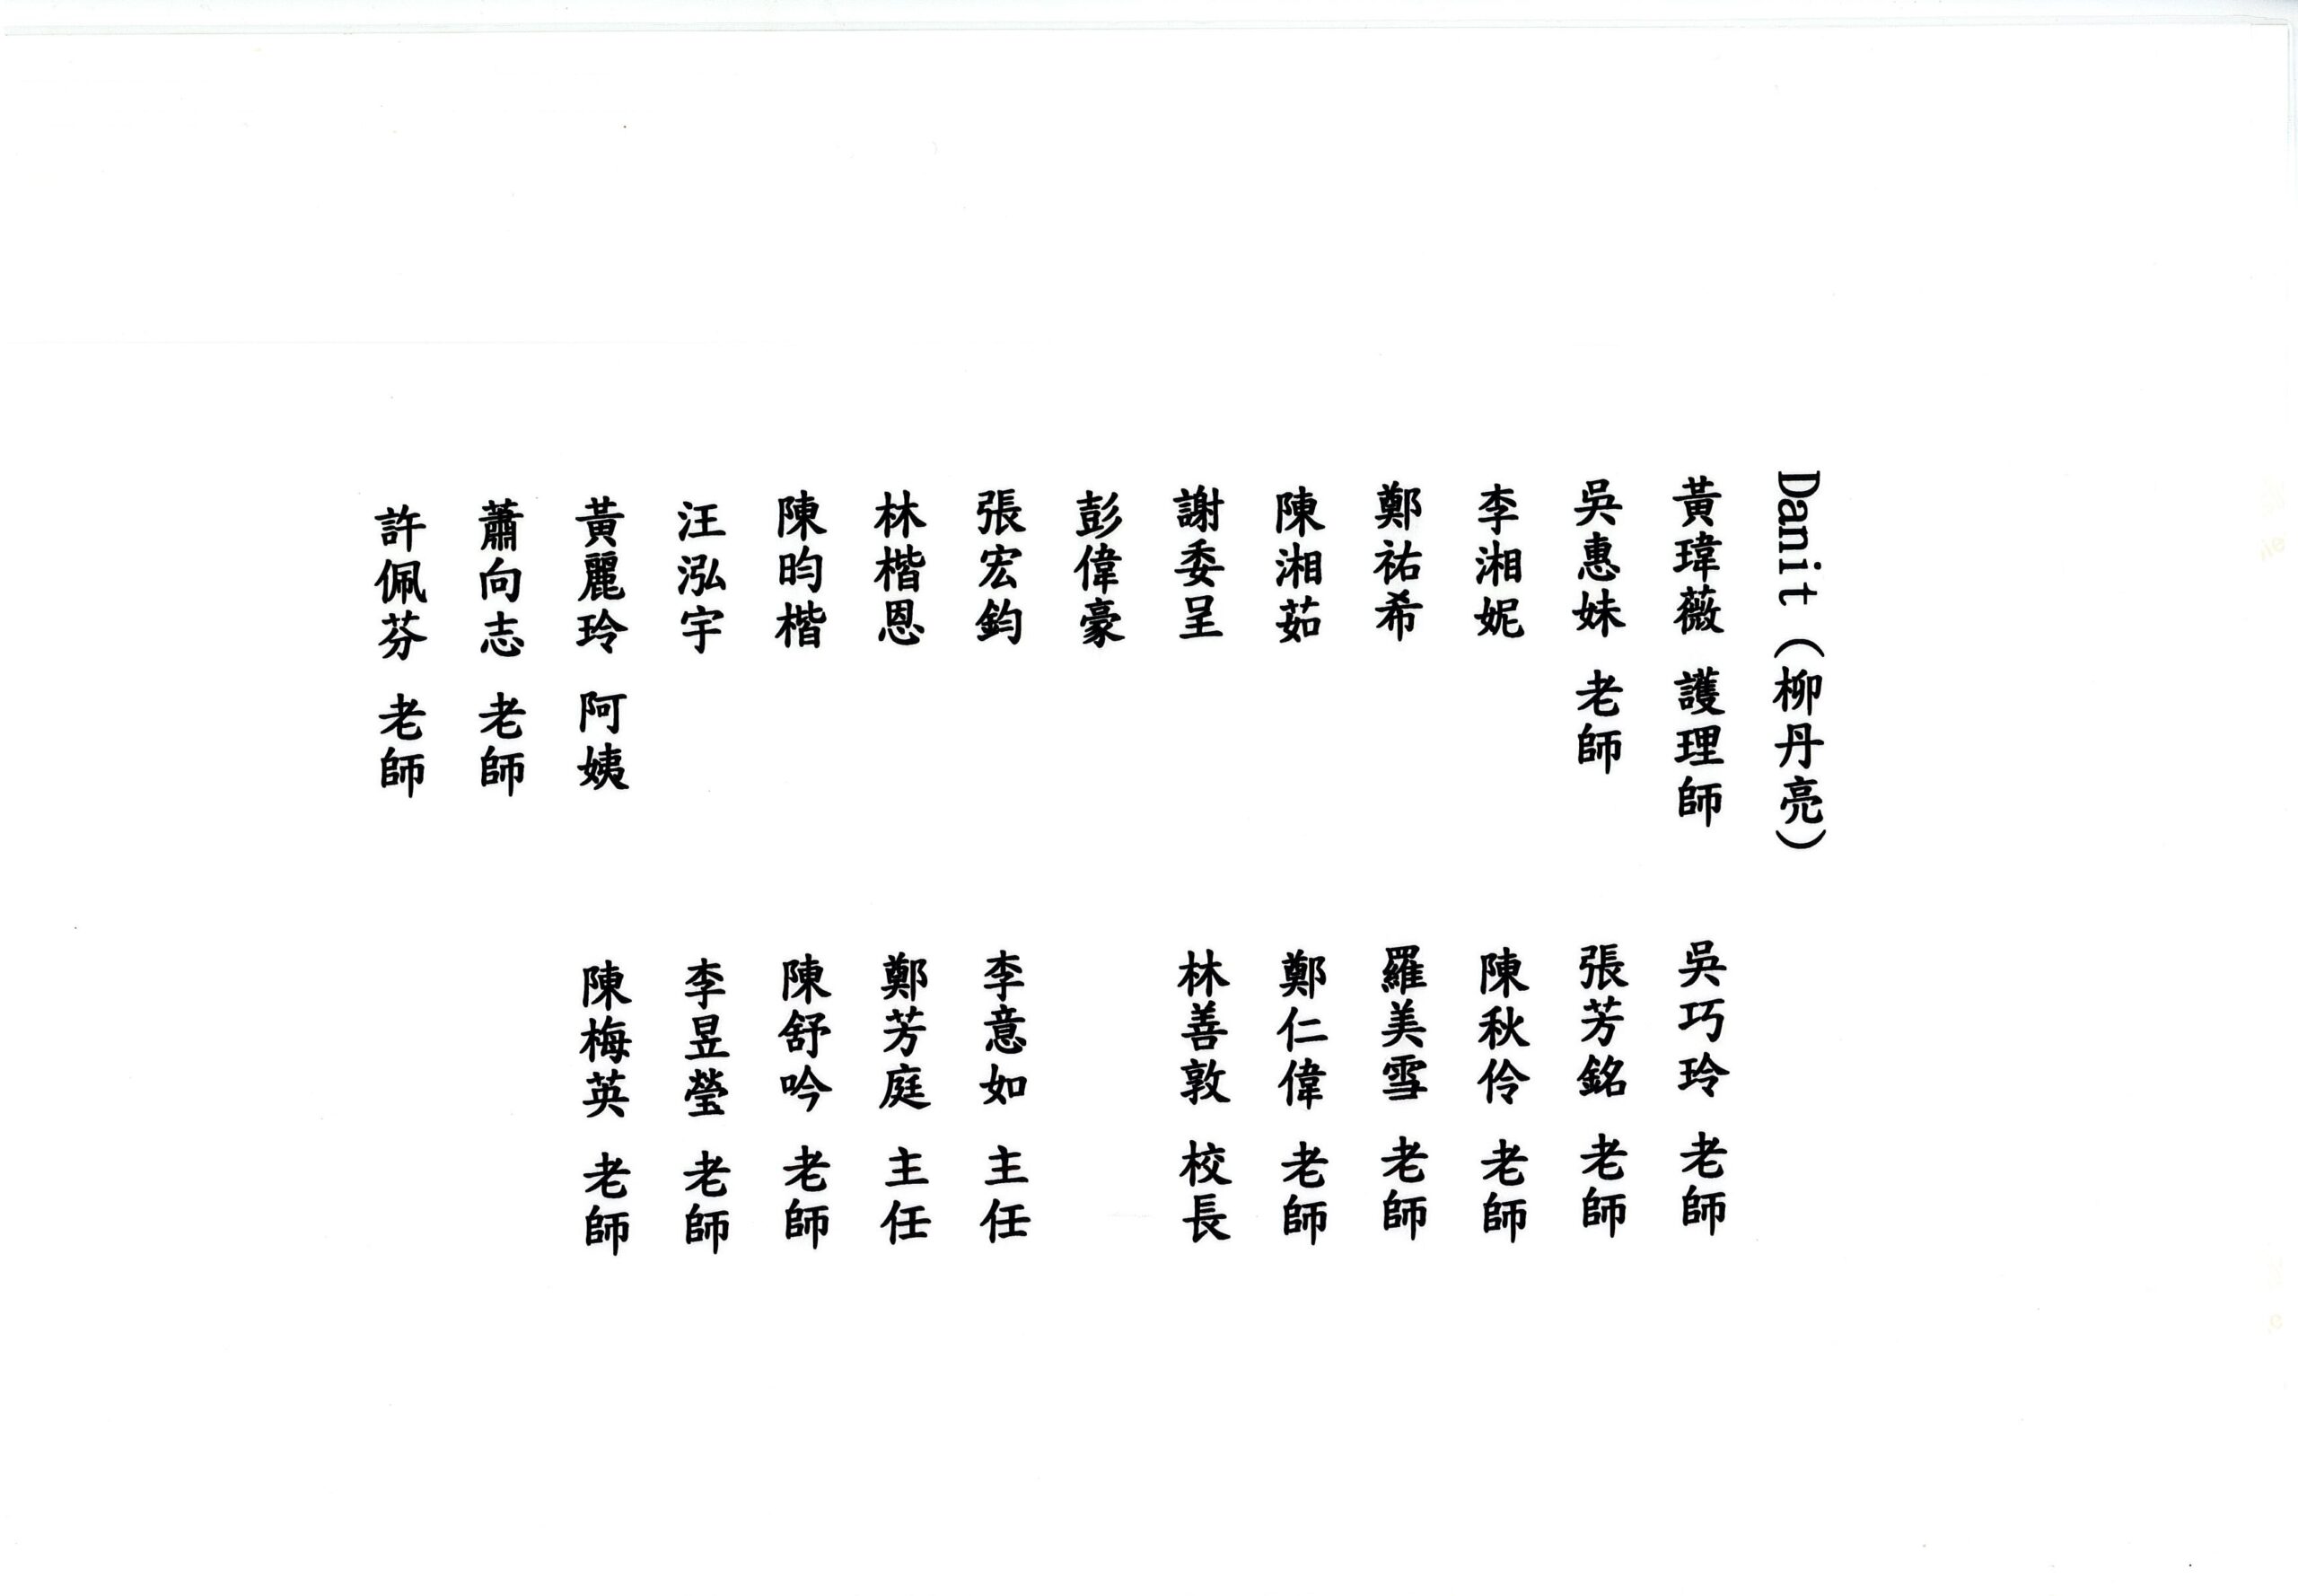 Danit(柳丹亮)
黃瑋薇 護理師
吳惠妹 老師
李湘妮
鄭祐希
陳湘茹
謝委呈
彭偉豪
張宏鈞
林楷恩
陳昀楷
汪泓宇
黃麗玲 阿姨
蕭向志 老師
許佩芬 老師
吳巧玲 老師
張芳銘 老師
陳秋伶 老師
羅美雪 老師
鄭仁偉 老師
林善敦 校長
李意如 主任
鄭芳庭 主任
陳舒吟 老師
李昱瑩 老師
陳梅英 老師